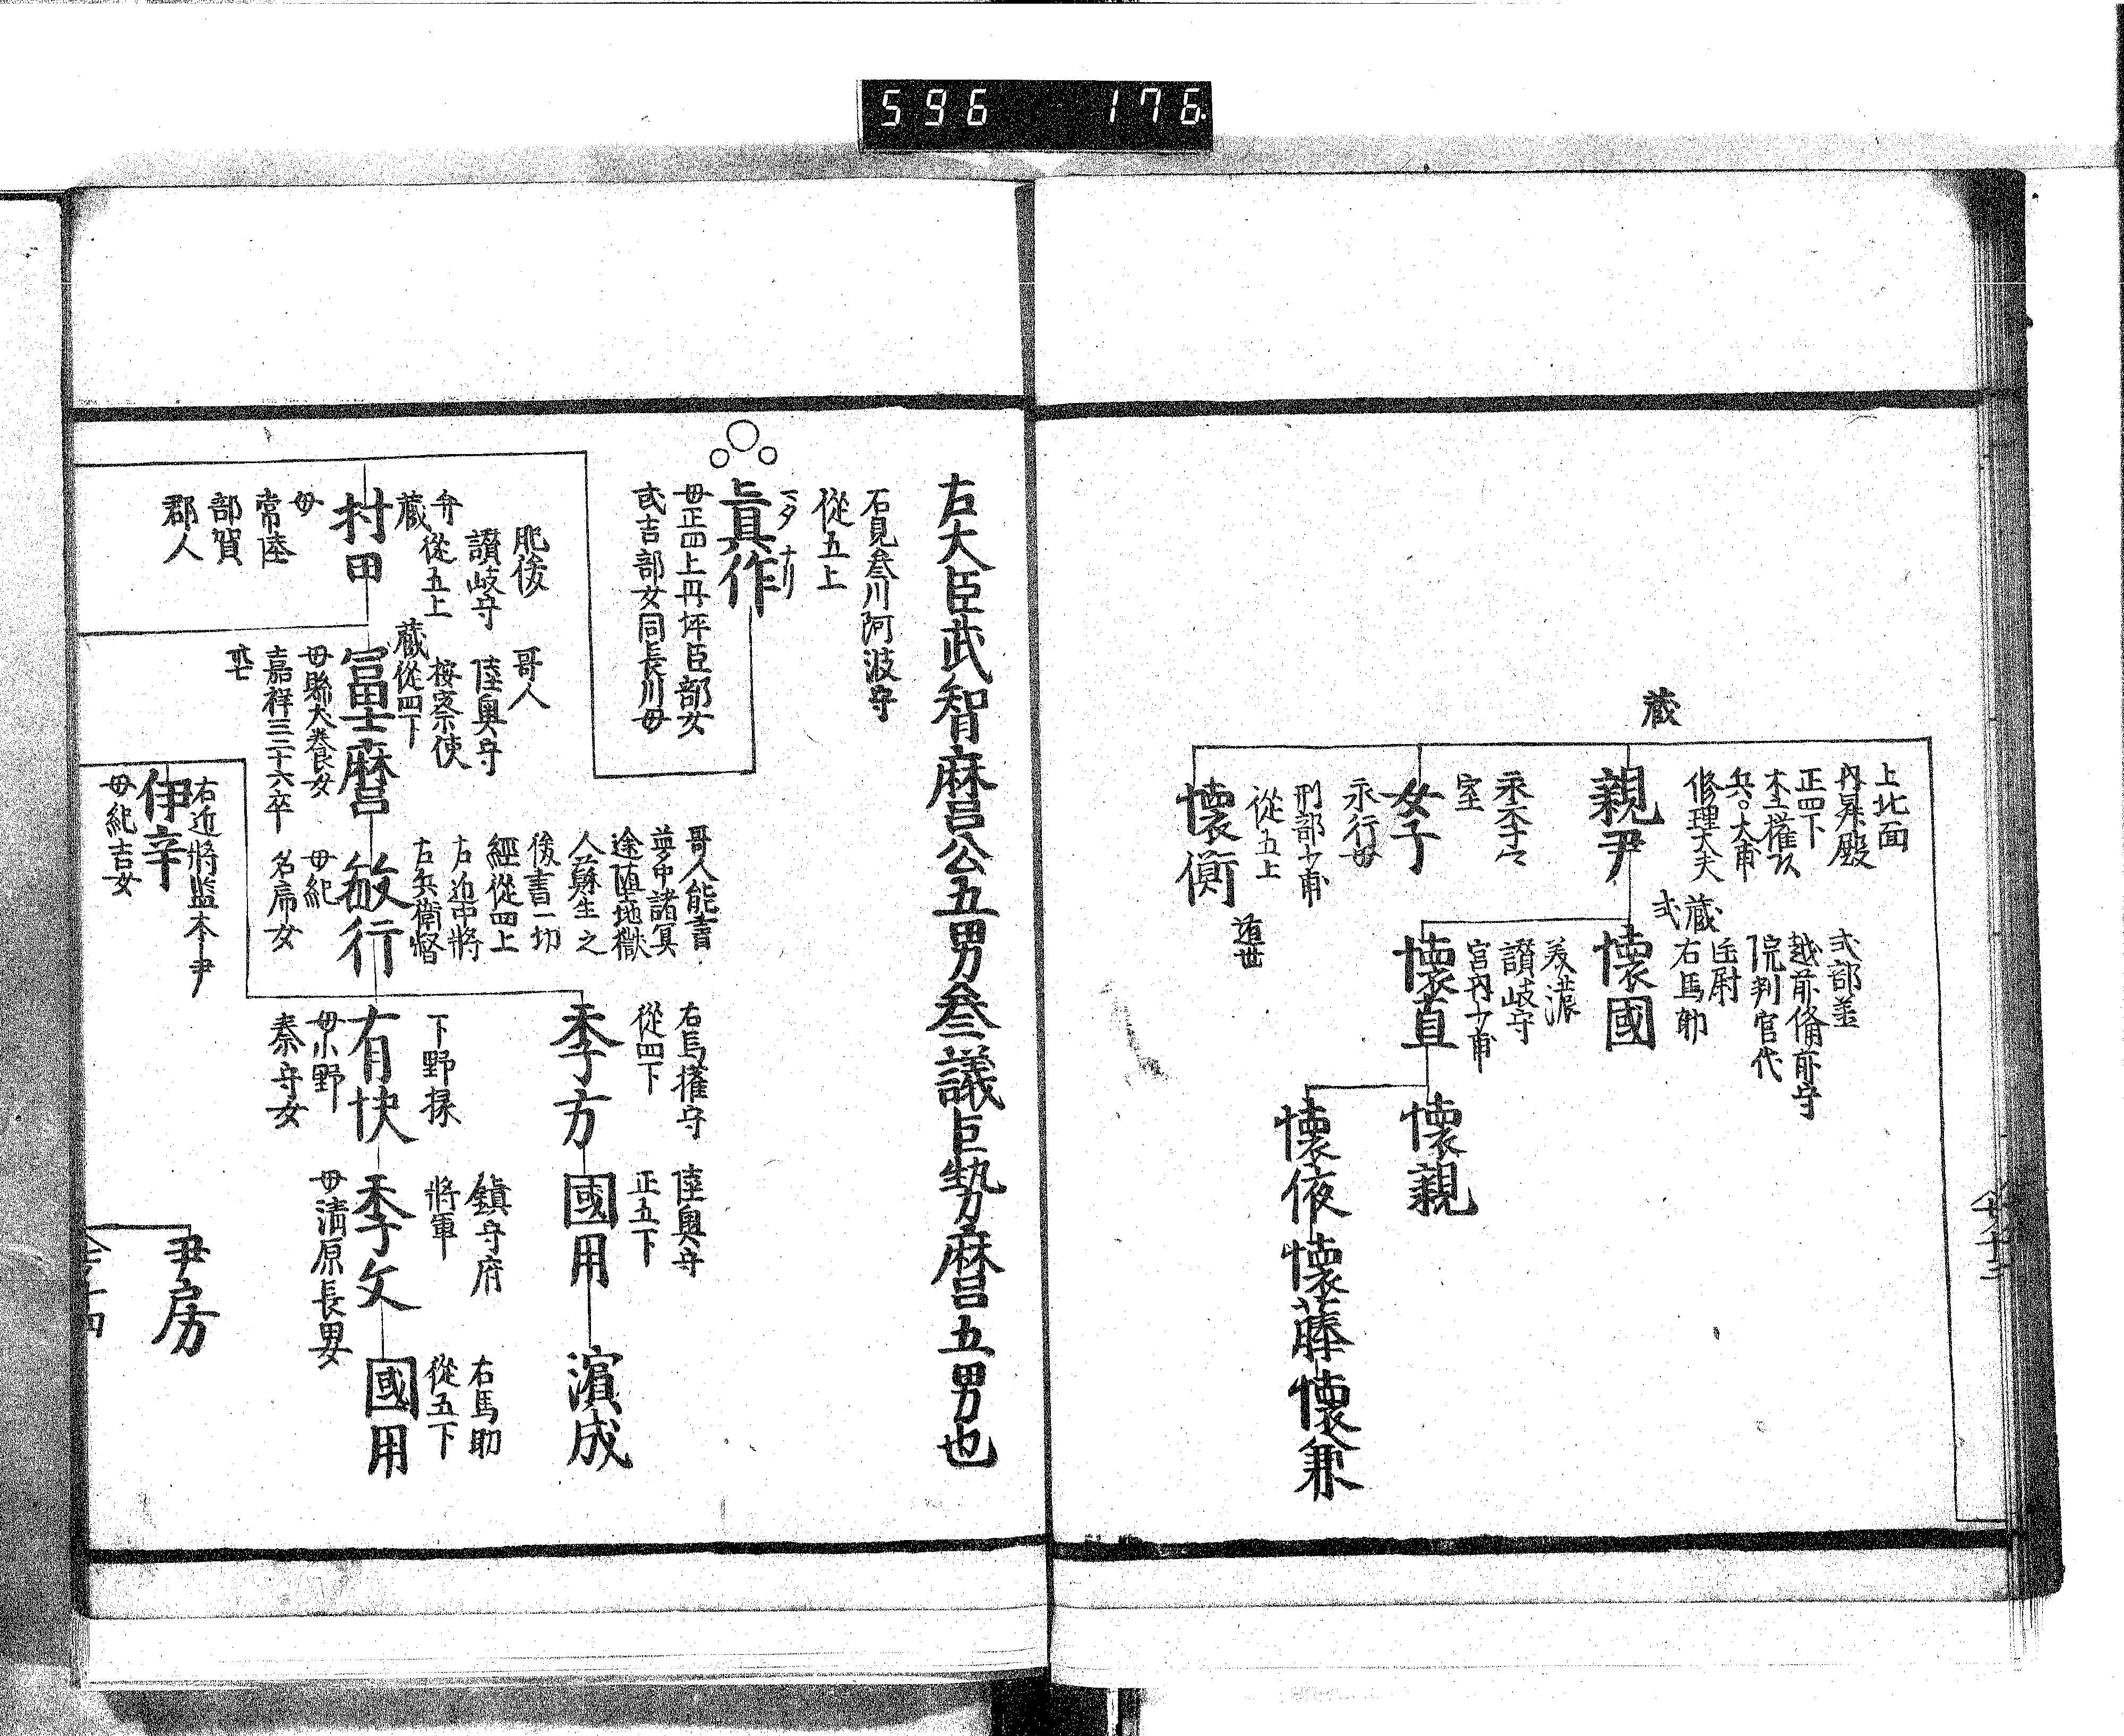 596 176
上北面
内昇殿
正四下
木工権頭
兵部大甫
修理大夫
蔵
親尹
式部丞
越前備前守
院判官代
左尉
右馬助
蔵
式
懐國
美濃
讃岐守
宮内少甫
懐直
懐親
懐俊
懐藤
懐兼
室
女子
永行母
刑部少甫
從五上
懐衡
遁世
右大臣武智麿公五男叅議巨勢麿五男也
石見叅川阿波守
從五上
真作
母正四上丹坪臣部女
或吉部女同長川母
肥後
讃岐守
弁
從五上
蔵
村田
母
常陸
部賀
郡人
哥人
陸奥守
按察使
蔵從四下
冨士麿
母縣犬養女
嘉祥三二十六卒
哥人能書
夢中諸冥
途堕地獄
人蘇生之
後書一切
經從四上
右近中將
右兵衛督
敏行
母紀
名虎女
右馬權守
從四下
季方
陸奥守
正五下
國用
濱成
下野掾
有快
母小野
秦守女
鎮守府
將軍
季文
母清原長男女
右馬助
從五下
國用
右近將監木工尹
伊辛
母紀吉女
尹房